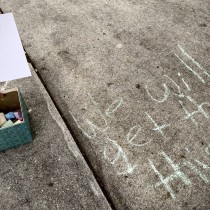 We will
get th
th